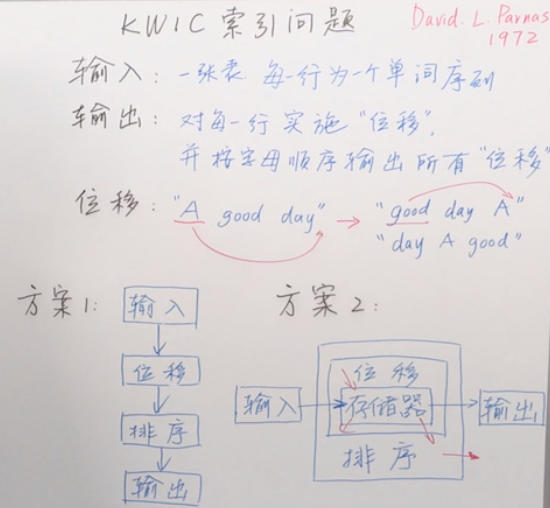 KWIC 索引问题
David. L. Parnas
1972
输入: 一张表 每一行为一个单词序列
输出: 对每一行实施"位移",
并按字母顺序输出所有"位移"
位移: "A good day" → "good day A"
"day A good"
方案1:
输入
位移
排序
输出
方案2:
位移
输入
存储器
输出
排序